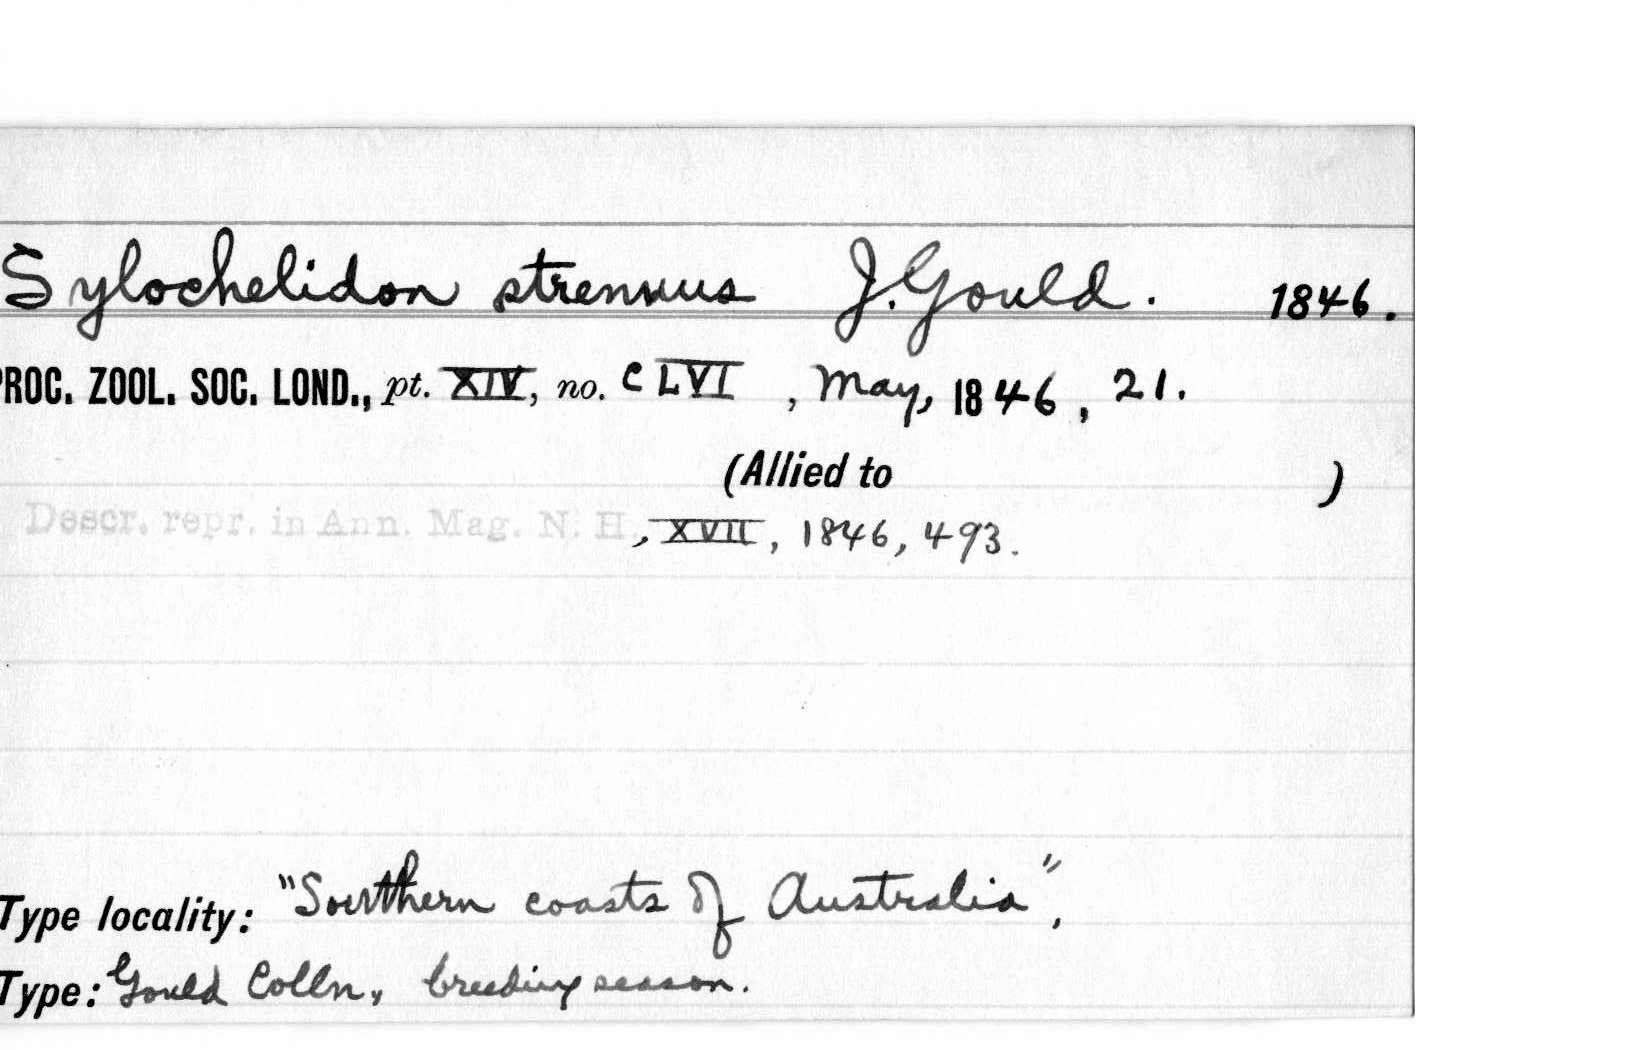 Sylochelidon strenuus J. Gould. 1846.
PROC. ZOOL. SOC. LOND., pt. XIV, no. CLVI, May, 1846, 21.
(Allied to )
Descr. repr. in Ann. Mag. N. H., XVII, 1846, 493.
Type locality: "Southern coasts of Australia",
Type: Gould Colln, breeding season.